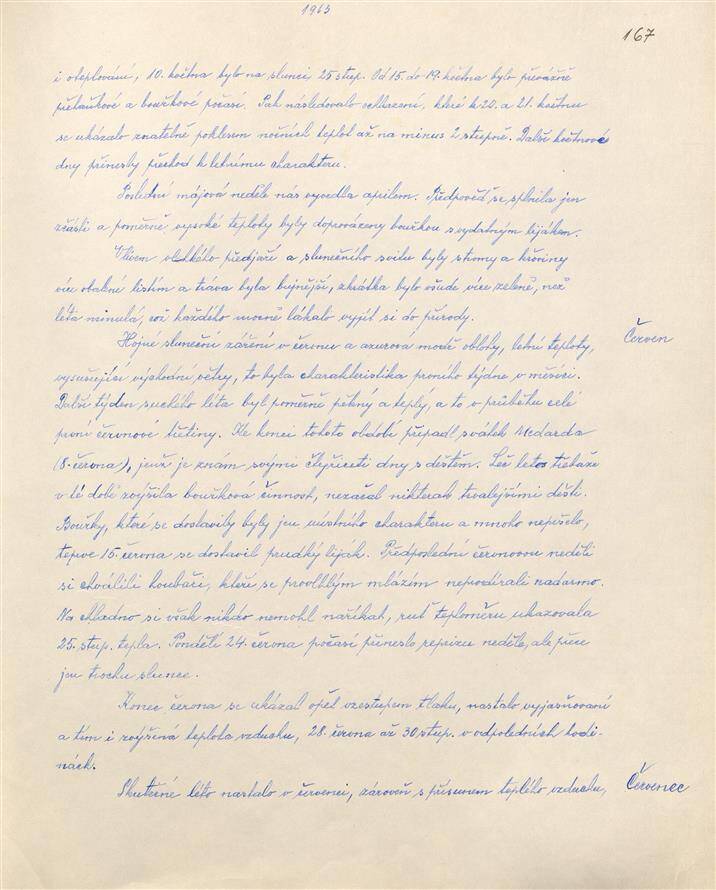 1963
167
i oteplování, 10. května bylo na slunci 25 stup. Od 15. do 19. května bylo převážně
přeháňkové a bouřkové počasí. Pak následovalo ochlazení, které k 20. a 21. květnu
se ukázalo znatelně poklesem nočních teplot až na minus 2 stupně. Další květnové
dny přinesly přechod k letnímu charakteru.
Poslední májová neděle nás vyvedla aprílem. Předpověď se splnila jen
zčásti a poměrně vysoké teploty byly doprovázeny bouřkou s vydatným lijákem.
Vlivem vlhkého předjaří a slunečního svitu byly stromy a křoviny
více obalené listím a tráva byla bujnější, zkrátka bylo všude více zeleně, než
léta minulá, což každého mocně lákalo vyjít si do přírody.
Hojné sluneční záření v červnu a azurová modř oblohy, letní teploty,
Červen
vysušující východní větry, to byla charakteristika prvního týdne v měsíci.
Další týden suchého léta byl poměrně pěkný a teplý, a to v průběhu celé
první červnové třetiny. Ke konci tohoto období připadl svátek Medarda
(8. června), jenž je znám svými čtyřiceti dny s deštěm. Leč letos třebaže
v té době zvýšila bouřková činnost, nezačal nikterak trvalejšími dešti.
Bouřky, které se dostavily byly jen místního charakteru a mnoho nepršelo,
teprve 15. června se dostavil prudký liják. Předposlední červnovou neděli
si chválili houbaři, kteří se provlhlým mlázím neprodírali nadarmo.
Na chladno si však nikdo nemohl naříkat, rtuť teploměru ukazovala
25. stup. tepla. Pondělí 24. června počasí přineslo reprízu neděle, ale přece
jen trochu slunce.
Konec června se ukázal opět vzestupem tlaku, nastalo vyjasňování
a tím i zvýšená teplota vzduchu, 28. června až 30 stup. v odpoledních hodi-
nách.
Skutečné léto nastalo v červenci, zároveň s přísunem teplého vzduchu,
Červenec